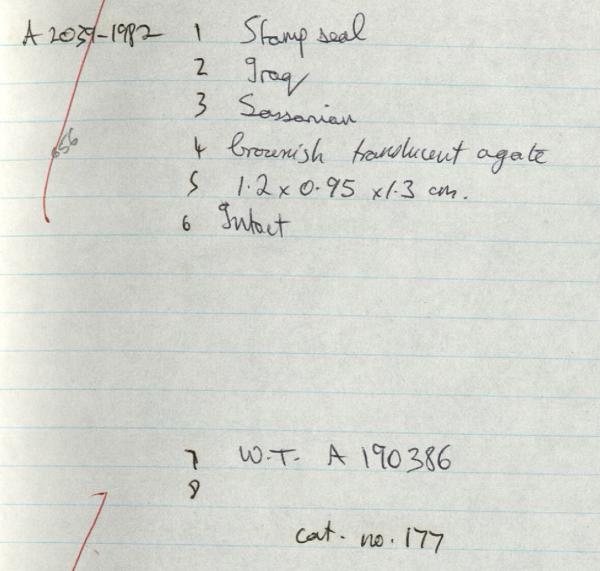 A 2039-1982 1 Stamp seal
2 Iraq
3 Sassanian
656
4 brownish translucent agate
5 1.2 x 0.95 x 1.3 cm.
6 Intact
7 W.T. A 190386
8
cat. no. 177